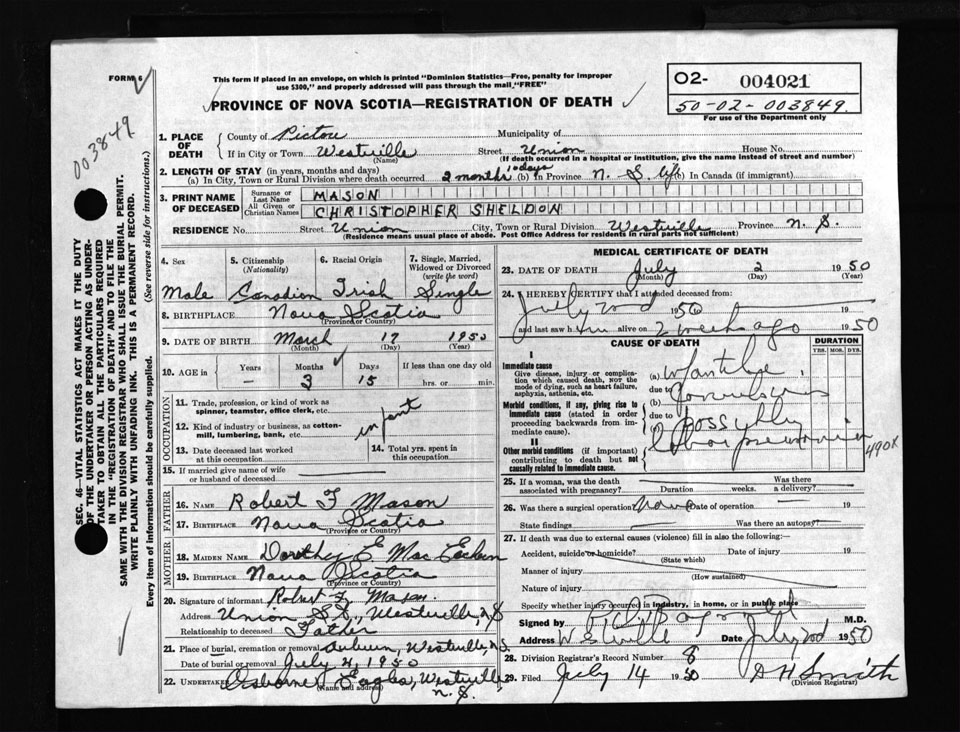 FORM 6
This form if placed in an envelope, on which is printed "Dominion Statistics—Free, penalty for improper
use $300," and properly addressed will pass through the mail, "FREE"
O2- 004021
50-02-003849.
For use of the Department only
PROVINCE OF NOVA SCOTIA—REGISTRATION OF DEATH
003849
1. PLACE OF DEATH
County of Pictou Municipality of
If in City or Town Westville Street Union House No.
(Name) (If death occurred in a hospital or institution, give the name instead of street and number)
2. LENGTH OF STAY (in years, months and days)
(a) In City, Town or Rural Division where death occurred 2 months 10 days (b) In Province N. S. life (c) In Canada (if immigrant)
3. PRINT NAME OF DECEASED
Surname or Last Name MASON
All Given or Christian Names CHRISTOPHER SHELDON
RESIDENCE No. Street Union City, Town or Rural Division Westville Province N. S.
(Residence means usual place of abode. Post Office Address for residents in rural parts not sufficient)
4. Sex 5. Citizenship (Nationality) 6. Racial Origin 7. Single, Married, Widowed or Divorced (write the word)
Male Canadian Irish Single
8. BIRTHPLACE Nova Scotia
(Province or Country)
9. DATE OF BIRTH March 17 1950
(Month) (Day) (Year)
10. AGE in Years Months Days If less than one day old
— 3 15 hrs. or min.
OCCUPATION
11. Trade, profession, or kind of work as
spinner, teamster, office clerk, etc.
12. Kind of industry or business, as cotton-
mill, lumbering, bank, etc. infant
13. Date deceased last worked
at this occupation
14. Total yrs. spent in
this occupation
15. If married give name of wife
or husband of deceased
FATHER
16. NAME Robert F Mason
17. BIRTHPLACE Nova Scotia
(Province or Country)
MOTHER
18. MAIDEN NAME Dorothy E. MacEachern
19. BIRTHPLACE Nova Scotia
(Province or Country)
20. Signature of informant Robert F. Mason.
Address Union St., Westville, N.S
Relationship to deceased Father
21. Place of burial, cremation or removal Auburn, Westville, N.S.
Date of burial or removal July 4, 1950
22. Undertaker Osborne Eagles, Westville
(Name and address) N. S.
MEDICAL CERTIFICATE OF DEATH
23. DATE OF DEATH July 2 1950
(Month) (Day) (Year)
24. I HEREBY CERTIFY that I attended deceased from:
July 2nd 1950 19
and last saw him alive on 2 week ago 1950
CAUSE OF DEATH DURATION
YRS. MOS. DYS.
I
Immediate cause
Give disease, injury or complica-
tion which caused death, NOT the
mode of dying, such as heart failure,
asphyxia, asthenia, etc.
(a)
due to
Morbid conditions, if any, giving rise to
immediate cause (stated in order
proceeding backwards from im-
mediate cause).
(b) Convulsions
due to
II
Other morbid conditions (if important)
contributing to death but not
causally related to immediate cause.
(c) possibly
pneumonia
490X
25. If a woman, was the death
associated with pregnancy? Duration weeks. Was there
a delivery?
26. Was there a surgical operation? None Date of operation 19
State findings Was there an autopsy?
27. If death was due to external causes (violence) fill in also the following:
Accident, suicide or homicide? Date of injury 19
(State which)
Manner of injury
(How sustained)
Nature of injury
Specify whether injury occurred in industry, in home, or in public place
Signed by M.D.
Address Westville Date July 2nd 1950
28. Division Registrar's Record Number 8
29. Filed July 14 1950 D H Smith
(Division Registrar)
SEC. 46—VITAL STATISTICS ACT MAKES IT THE DUTY
OF THE UNDERTAKER OR PERSON ACTING AS UNDER-
TAKER TO OBTAIN ALL THE PARTICULARS REQUIRED
IN THE "REGISTRATION OF DEATH" AND TO FILE THE
SAME WITH THE DIVISION REGISTRAR WHO SHALL ISSUE THE BURIAL PERMIT.
WRITE PLAINLY WITH UNFADING INK. THIS IS A PERMANENT RECORD.
Every item of information should be carefully supplied. (See reverse side for instructions.)